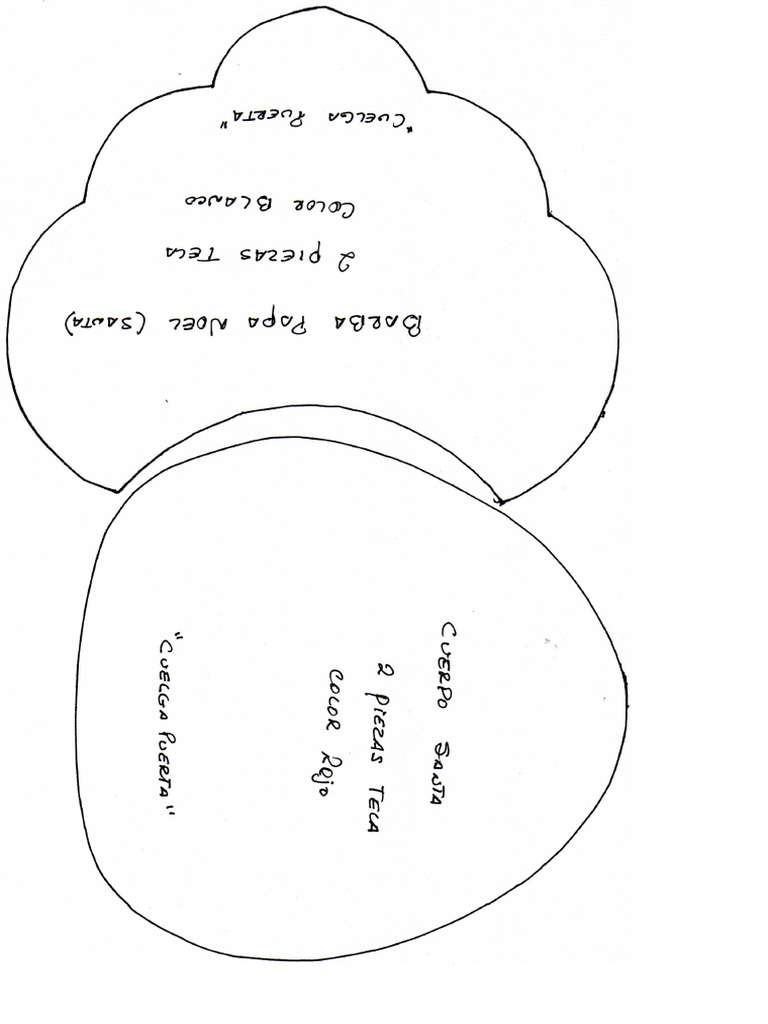 BARBA PAPA NOEL (SANTA)
2 PIEZAS TELA
COLOR BLANCO
"CUELGA PUERTA"
CUERPO SANTA
2 PIEZAS TELA
COLOR ROJO
"CUELGA PUERTA"